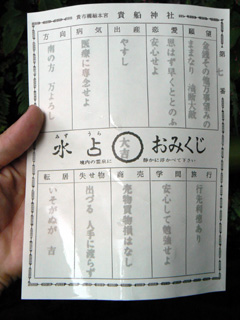 貴布禰総本宮 貴船神社
第七番
願望
金銭その他万事望みの
ままなり 油断大敵
恋愛
思はず早くととのふ
縁談
安心せよ
出産
やすし
病気
医療に専念せよ
方向
南の方 万よろし
おみくじ
静かに浮かべて下さい
大吉
水占
みず うら
境内の霊泉に
旅行
行先利益あり
学問
安心して勉強せよ
商売
売物買物損はなし
失せ物
出づる 人手に渡らず
転居
いそがぬが 吉